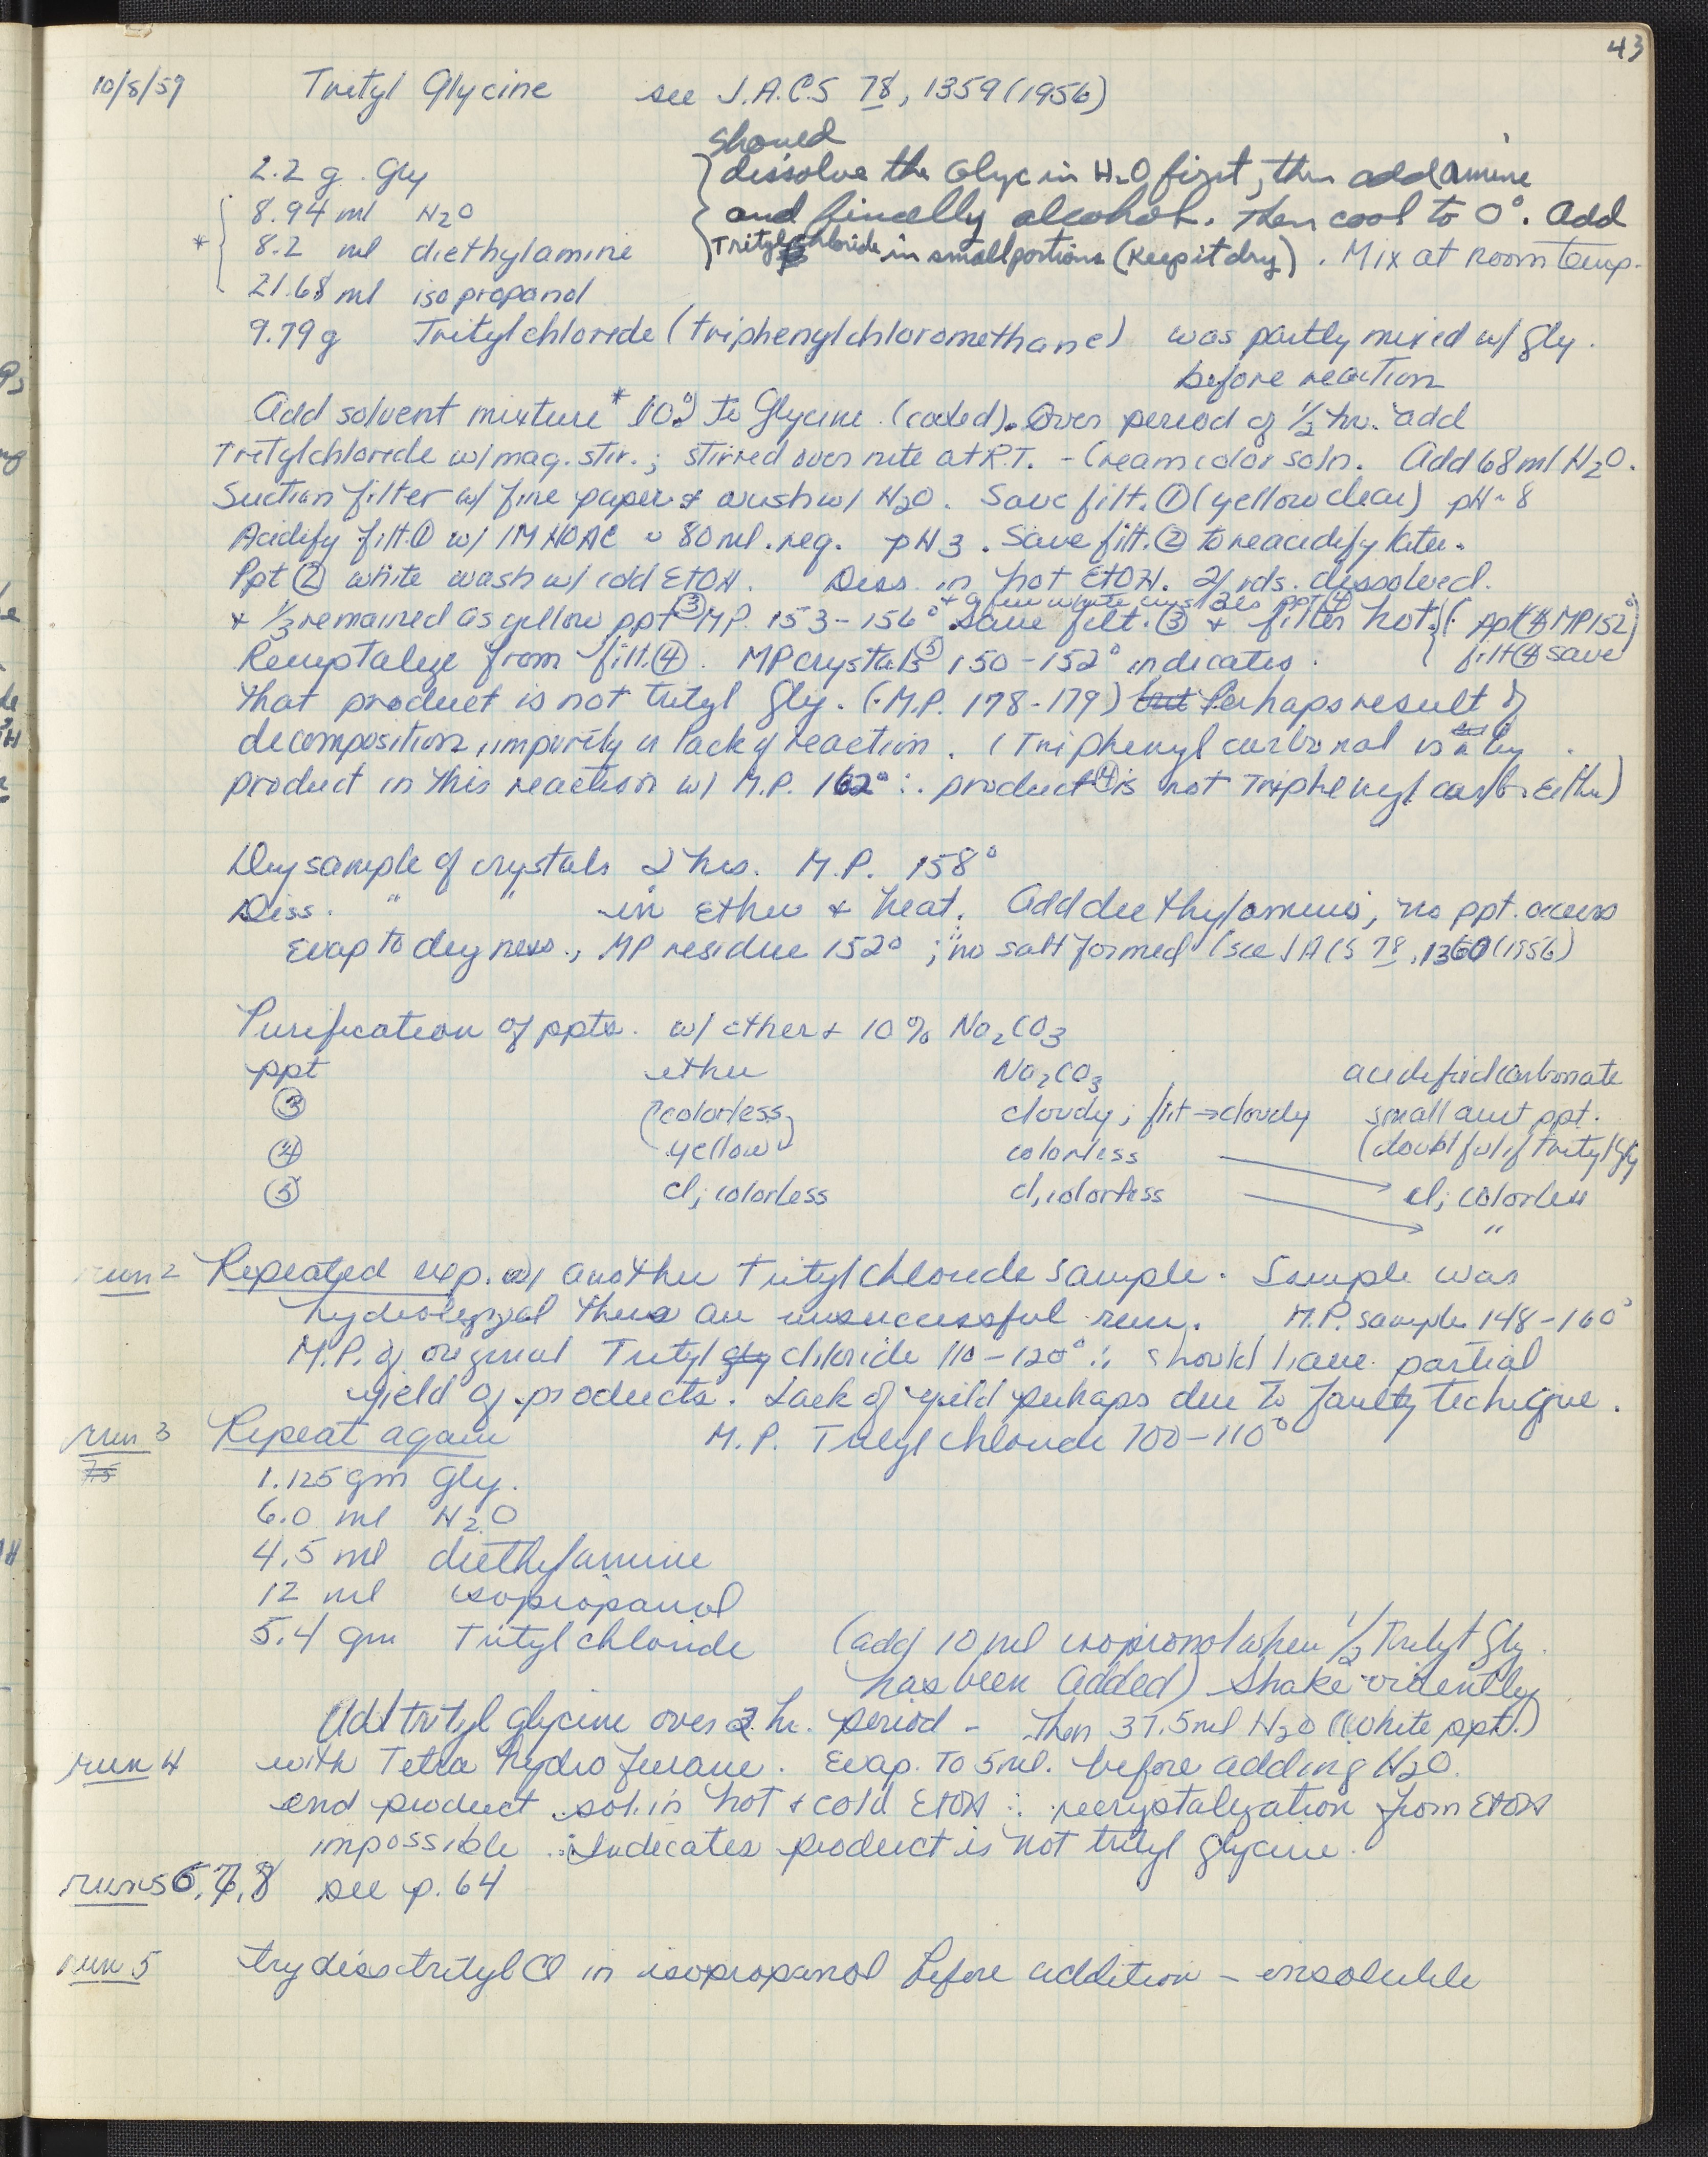 43
10/8/59 Trityl Glycine see J.A.C.S 78, 1359 (1956)
should
2.2 g. Gly dissolve the Glyc in H2O first, then add amine
8.94 ml H2O and finally alcohol. Then cool to 0°. Add
* 8.2 ml diethylamine Trityl chloride in small portions (Keep it dry). Mix at room temp.
21.68 ml isopropanol
9.79 g Tritylchloride (triphenylchloromethane) was partly mixed w/ gly.
before reaction
Add solvent mixture* (0°) to Glycine (cooled). Over period of 1/2 hr. add
Tritylchloride w/ mag. stir.; stirred over nite at R.T. - Cream color soln. Add 68 ml H2O.
Suction filter w/ fine paper & wash w/ H2O. Save filt. ① (yellow clear) pH ~ 8
Acidify filt. ① w/ 1M HOAC ~ 80 ml. req. pH 3. Save filt. ② to reacidify later.
Ppt ② white wash w/ cold EtOH. Diss. in hot EtOH. 2/3rds. dissolved.
+ a few white crystals ppt ④
& 1/3 remained as yellow ppt ③ MP. 153-156° Save filt. ③ & filter hot. (ppt ④ MP 152°)
Recrystalize from filt. ④. MP crystals ⑤ 150-152° indicates. filt ④ save
that product is not trityl gly. (M.P. 178-179) but Perhaps result of
decomposition, impurity or lack of reaction. (Triphenyl carbinol is a by
product in this reaction w/ M.P. 162° ∴ product ④ is not Triphenyl carb. either)
Dry sample of crystals 2 hrs. M.P. 158°
Diss. " " in ether & heat. Add diethylamine, no ppt. occurs
Evap to dryness., MP residue 152°; "no salt formed (see JACS 78, 1360 (1956)
Purification of ppts. w/ ether & 10% Na2CO3
ppt ether Na2CO3 acidified carbonate
③ colorless cloudy; filt → cloudy small amt ppt.
④ yellow colorless (doubtful if trityl gly
⑤ cl; colorless cl, colorless cl; colorless
"
run 2 Repeated exp. w/ another Tritylchloride sample. Sample was
hydrolyzed thus an unsuccessful run. M.P. sample 148-160°
M.P. of original Trityl gly chloride 110-120° ∴ should have partial
yield of products. Lack of yield perhaps due to faulty technique.
run 3 Repeat again M.P. Trityl chloride 100-110°
7.5
1.125 gm Gly.
6.0 ml H2O
4.5 ml diethylamine
12 ml isopropanol
5.4 gm Trityl chloride (add 10 ml isopropnol when 1/2 Trityl Gly.
has been added) Shake vidently
Add trityl glycine over 2 hr. period - then 37.5 ml H2O (white ppt.)
run 4 with Tetra hydro furane. Evap. to 5 ml. before adding H2O.
end product sol. in hot & cold EtOH ∴ recrystalization from EtOH
impossible ∴ Indicates product is not trityl glycine.
runs 6, 7, 8 see p. 64
run 5 try diss trityl Cl in isopropanol before addition - insoluble